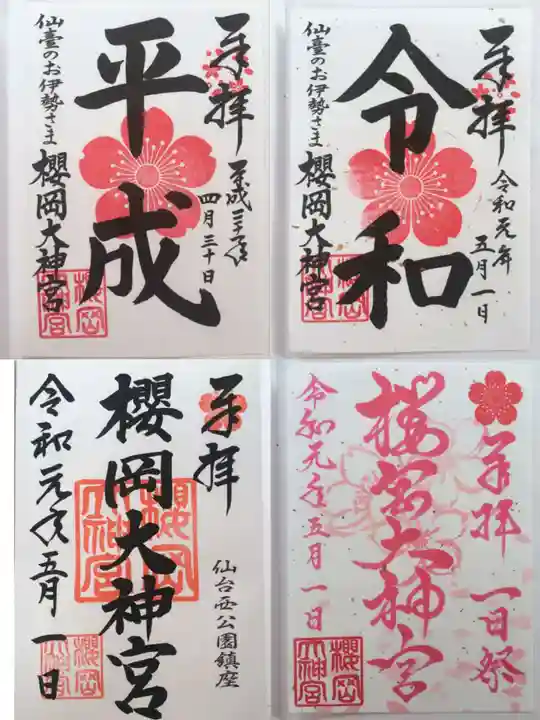 奉拝
平成三十一年
四月三十日
平成
仙臺のお伊勢さま
櫻岡大神宮
櫻岡大神宮
奉拝
令和元年
五月一日
令和
仙臺のお伊勢さま
櫻岡大神宮
櫻岡大神宮
奉拝
仙台西公園鎮座
櫻岡大神宮
櫻岡大神宮
令和元年五月一日
櫻岡大神宮
奉拝 一日祭
桜岡大神宮
令和元年五月一日
櫻岡大神宮